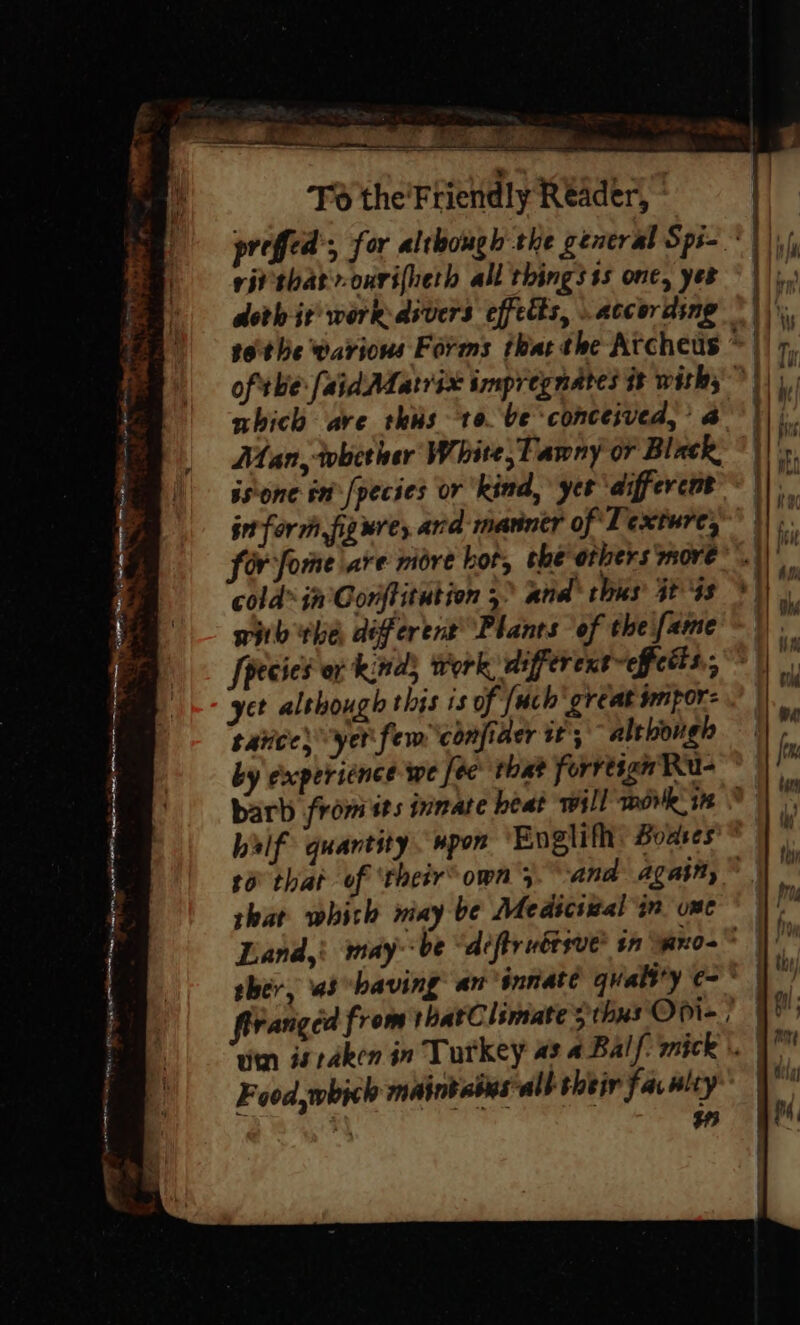 To the Friendly Reader,
preſſed; for although the general Spi-
rit that nouriſheth all things is one, yet
doth it work divers effects, according
to the various Forms that the Archeus
of the ſaid Matrix impregnates it with,
which are thus to be conceived, a
Man, whether White, Tawny or Black,
is one in ſpecies or kind, yet different
in form, figure, and manner of Texture,
for ſome are more hot, the others more
cold in Conſtitution; and thus it is
with the different Plants of the ſame
ſpecies or kind, work different effects;
yet although this is of ſuch great impor-
tance, yet few conſider it; although
by experience we ſee that forreign Ru-
barb from its innate heat will work in
half quantity upon Engliſh Bodies
to that of their own; and again,
that which may be Medicinal in one
Land, may be deſtructive in ano-
ther, as having an innate quality e-
ſtranged from that Climate; thus Opi-
um is taken in Turkey as a Balſamick
Food, which maintains all their faculty
in